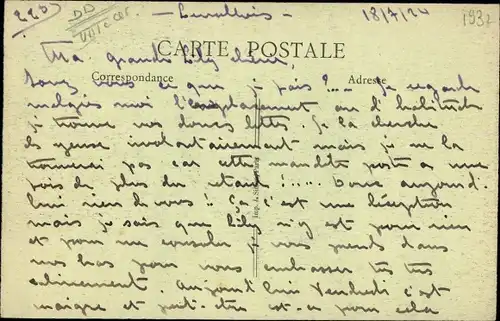 Levallois 18/7/24 193
Ma grande Lily chérie,
CARTE POSTALE
Correspondance Adresse
Savez vous ce que je fais ?... Je regarde
malgré moi l'emplacement où d'habitude
je trouve vos douces lettres. Je la cherche
des yeux involontairement mais je ne la
trouverai pas car cette maudite poste a une
fois de plus du retard !..... Donc aujourd'
hui rien de vous ! Ça c'est une déception
mais je sais que Lily n'y est pour rien
et pour me consoler je vous prends dans
mes bras pour vous embrasser très très
Aujourd'hui Vendredi c'est
maigre et peut-être est-ce pour cela